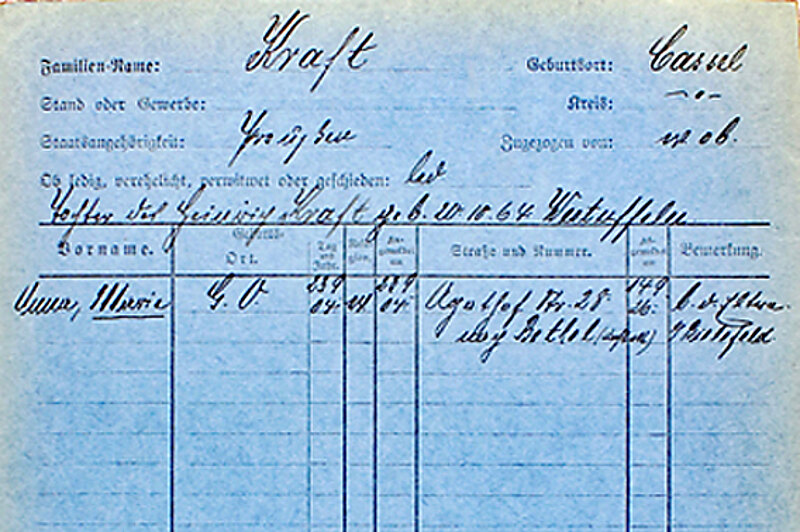 Familien-Name: Kraft Geburtsort: Cassel
Stand oder Gewerbe: Kreis: „
Staatsangehörigkeit: Preußen Zugezogen von: w. ob.
Ob ledig, verehelicht, verwitwet oder geschieden: led
Tochter des Heinrich Kraft geb. 20.10.64
Vorname. Geburts- Ort. Tag und Jahr. Religion. An- gemeldet am Straße und Nummer. Ab- gemeldet am Bemerkung.
Anna, Maria G. O 23 9 04. 28 9 04. Agathof Str. 28 14 9 26. b. d. Eltern
nach Bethel Bielefeld